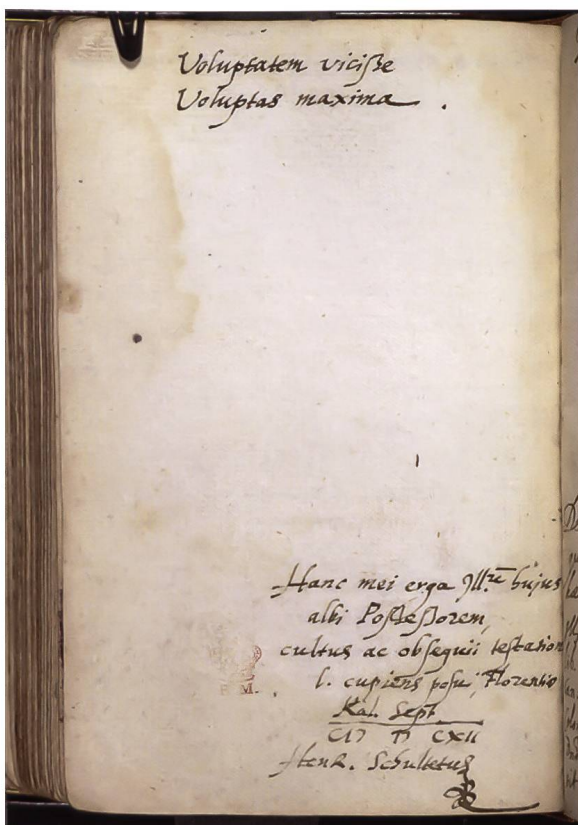 Voluptatem viciße
Voluptas maxima .
Hanc mei erga Ill.re hujus
albi Poſſeßorem,
cultus ac obſequii teſtation
l. cupiens poſui, Florentiæ
Kal. Sept.
CIↃ IↃ CXII
Henr. Schultetus